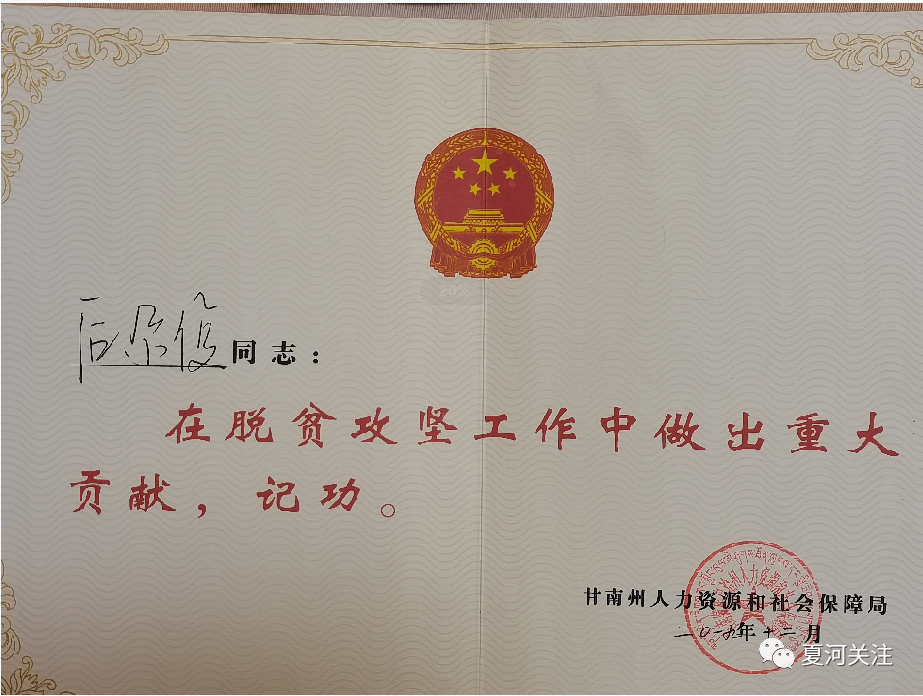 后尕俊同志：
在脱贫攻坚工作中做出重大
贡献，记功。
甘南州人力资源和社会保障局
二〇一九年十二月
夏河关注